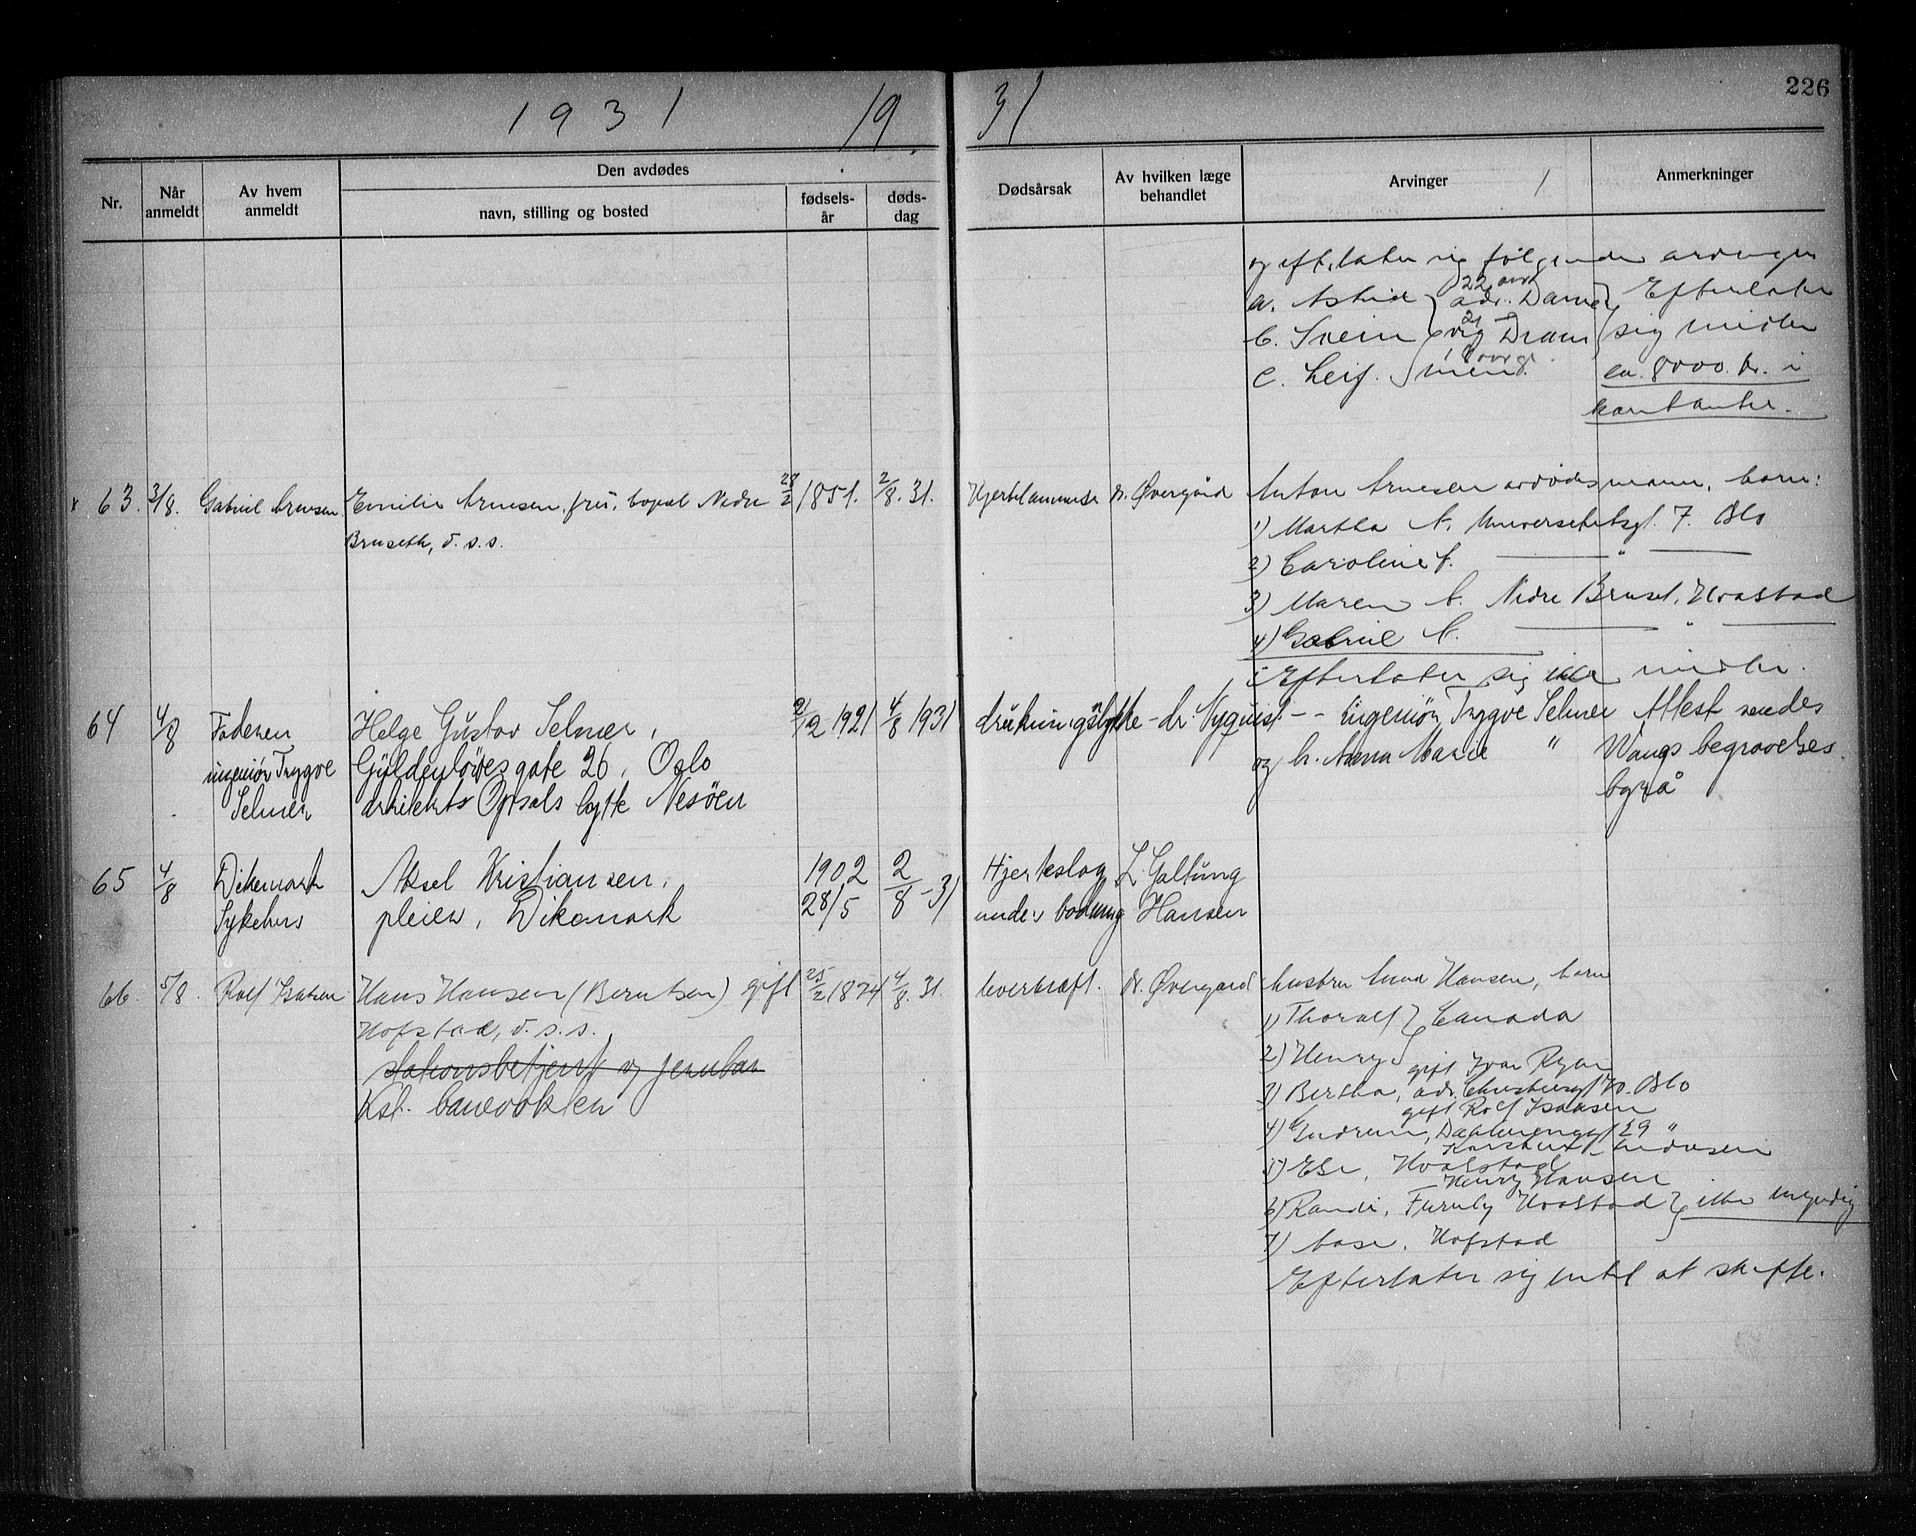 226
1931 19 31
Nr.
Når anmeldt
Av hvem anmeldt
Den avdødes
navn, stilling og bosted
fødsels-år
døds-dag
Dødsårsak
Av hvilken læge behandlet
Arvinger
Anmerkninger
og efterlater sig følgende arvinger
a. Astrid 22 år adr. Dam Efterlater
b. Svein 21 vig Dram sig midler
c. Leif. 18 år men. ca. 8000 kr. i
kontanter.
x 63. 3/8. Gabriel Arnesen Emilie Arnesen, frú, bopæl Nedre 28/2 1851. 2/8. 31. Hjertelammelse dr. Øvergård Anton Arnesen avdødes mann, barn:
Bruseth, d. s. s.
1) Martha A. Universitetsgt. 7. Oslo
2) Caroline A. — " —
3) Maren A. Nedre Bruset, Hvalstad
4) Gabriel A. — " —
Efterlater sig ikke midler.
64 4/8 Faderen Helge Gústav Selmer, 2/2 1921 4/8 1931 drukningsulykke - dr. Nyquist - - Ingeniør Trygve Selmer Attest sendes
ingeniør Trygve Gyldenløvesgate 26, Oslo og h. Anna Marie " Wangs begravelses
Selmer arkitekts Opsals hytte Nesöen byrå
65 4/8 Dikemark Aksel Kristiansen, 1902 2/8 - 31 Hjerteslag L. Galtung
Sykehus pleier, Dikemark 28/5 under badning Hansen
66. 5/8. Rolf Isaksen Hans Hansen (Berntsen) gift 25/2 1874 4/8. 31. leverkræft. dr. Øvergård hustru Anna Hansen, barn
Hofstad, d. s. s. 1) Thoralf } Canada
stationsbetjent og jernban 2) Henry
Kst. banevokter gift Ivar Ryan
3) Bertha, adr. 70. Oslo
gift Rolf Isaksen
4) Gudrun, 29 "
5) Else, Hvalstad
Henry Hansen
6) Randi, Furuly Hvalstad } ikke myndig
7) Aase, Hofstad
Efterlater sig intet at skifte.